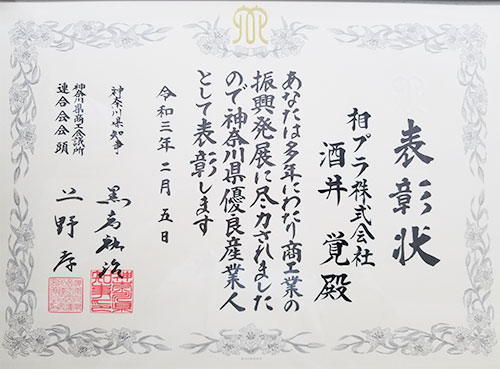 表彰状
相プラ株式会社
酒井覚殿
あなたは多年にわたり商工業の
振興発展に尽力されました
ので神奈川県優良産業人
として表彰します
令和三年二月五日
神奈川県知事
黒岩祐治
神奈川県商工会議所
連合会会頭
上野孝